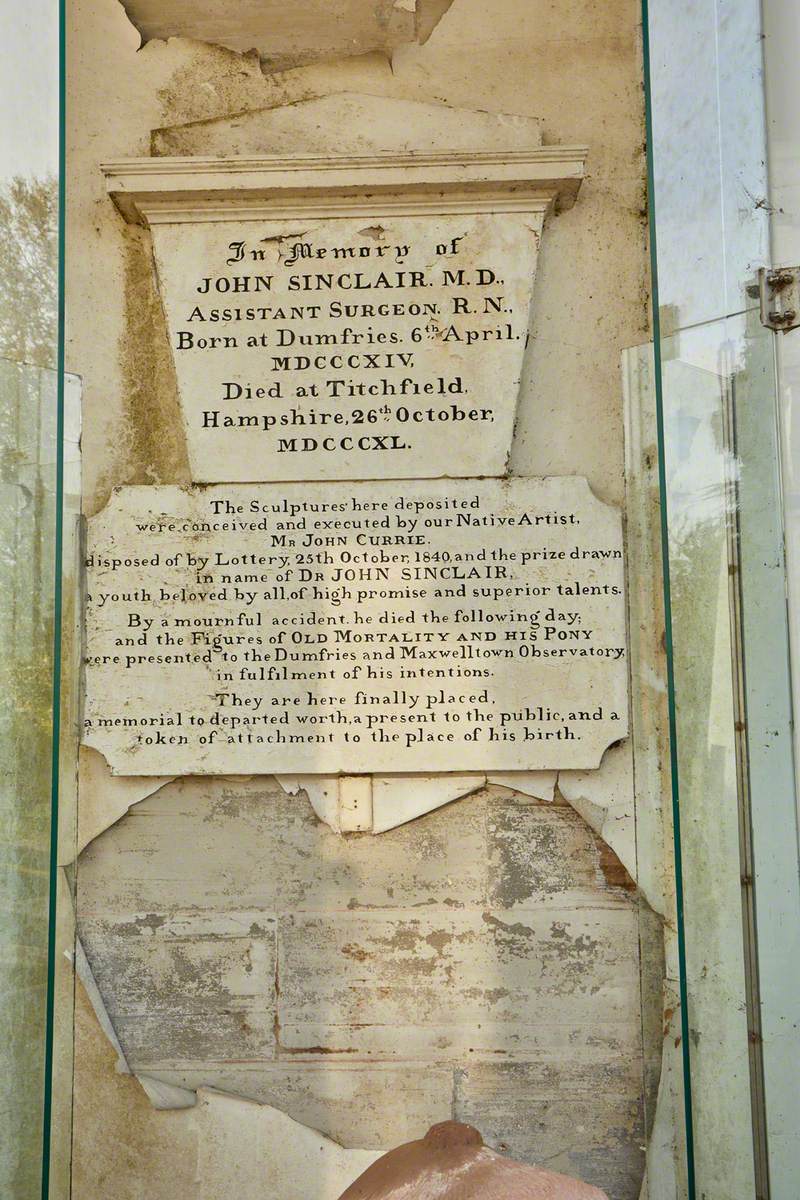 In Memory of
JOHN SINCLAIR. M.D.,
ASSISTANT SURGEON. R.N.,
Born at Dumfries. 6th April.
MDCCCXIV,
Died at Titchfield,
Hampshire, 26th October,
MDCCCXL.
The Sculptures here deposited
were conceived and executed by our Native Artist,
MR JOHN CURRIE.
disposed of by Lottery, 25th October, 1840, and the prize drawn
in name of DR JOHN SINCLAIR,
a youth beloved by all, of high promise and superior talents.
By a mournful accident. he died the following day;
and the Figures of OLD MORTALITY AND HIS PONY
were presented to the Dumfries and Maxwelltown Observatory,
in fulfilment of his intentions.
They are here finally placed,
a memorial to departed worth, a present to the public, and a
token of attachment to the place of his birth.